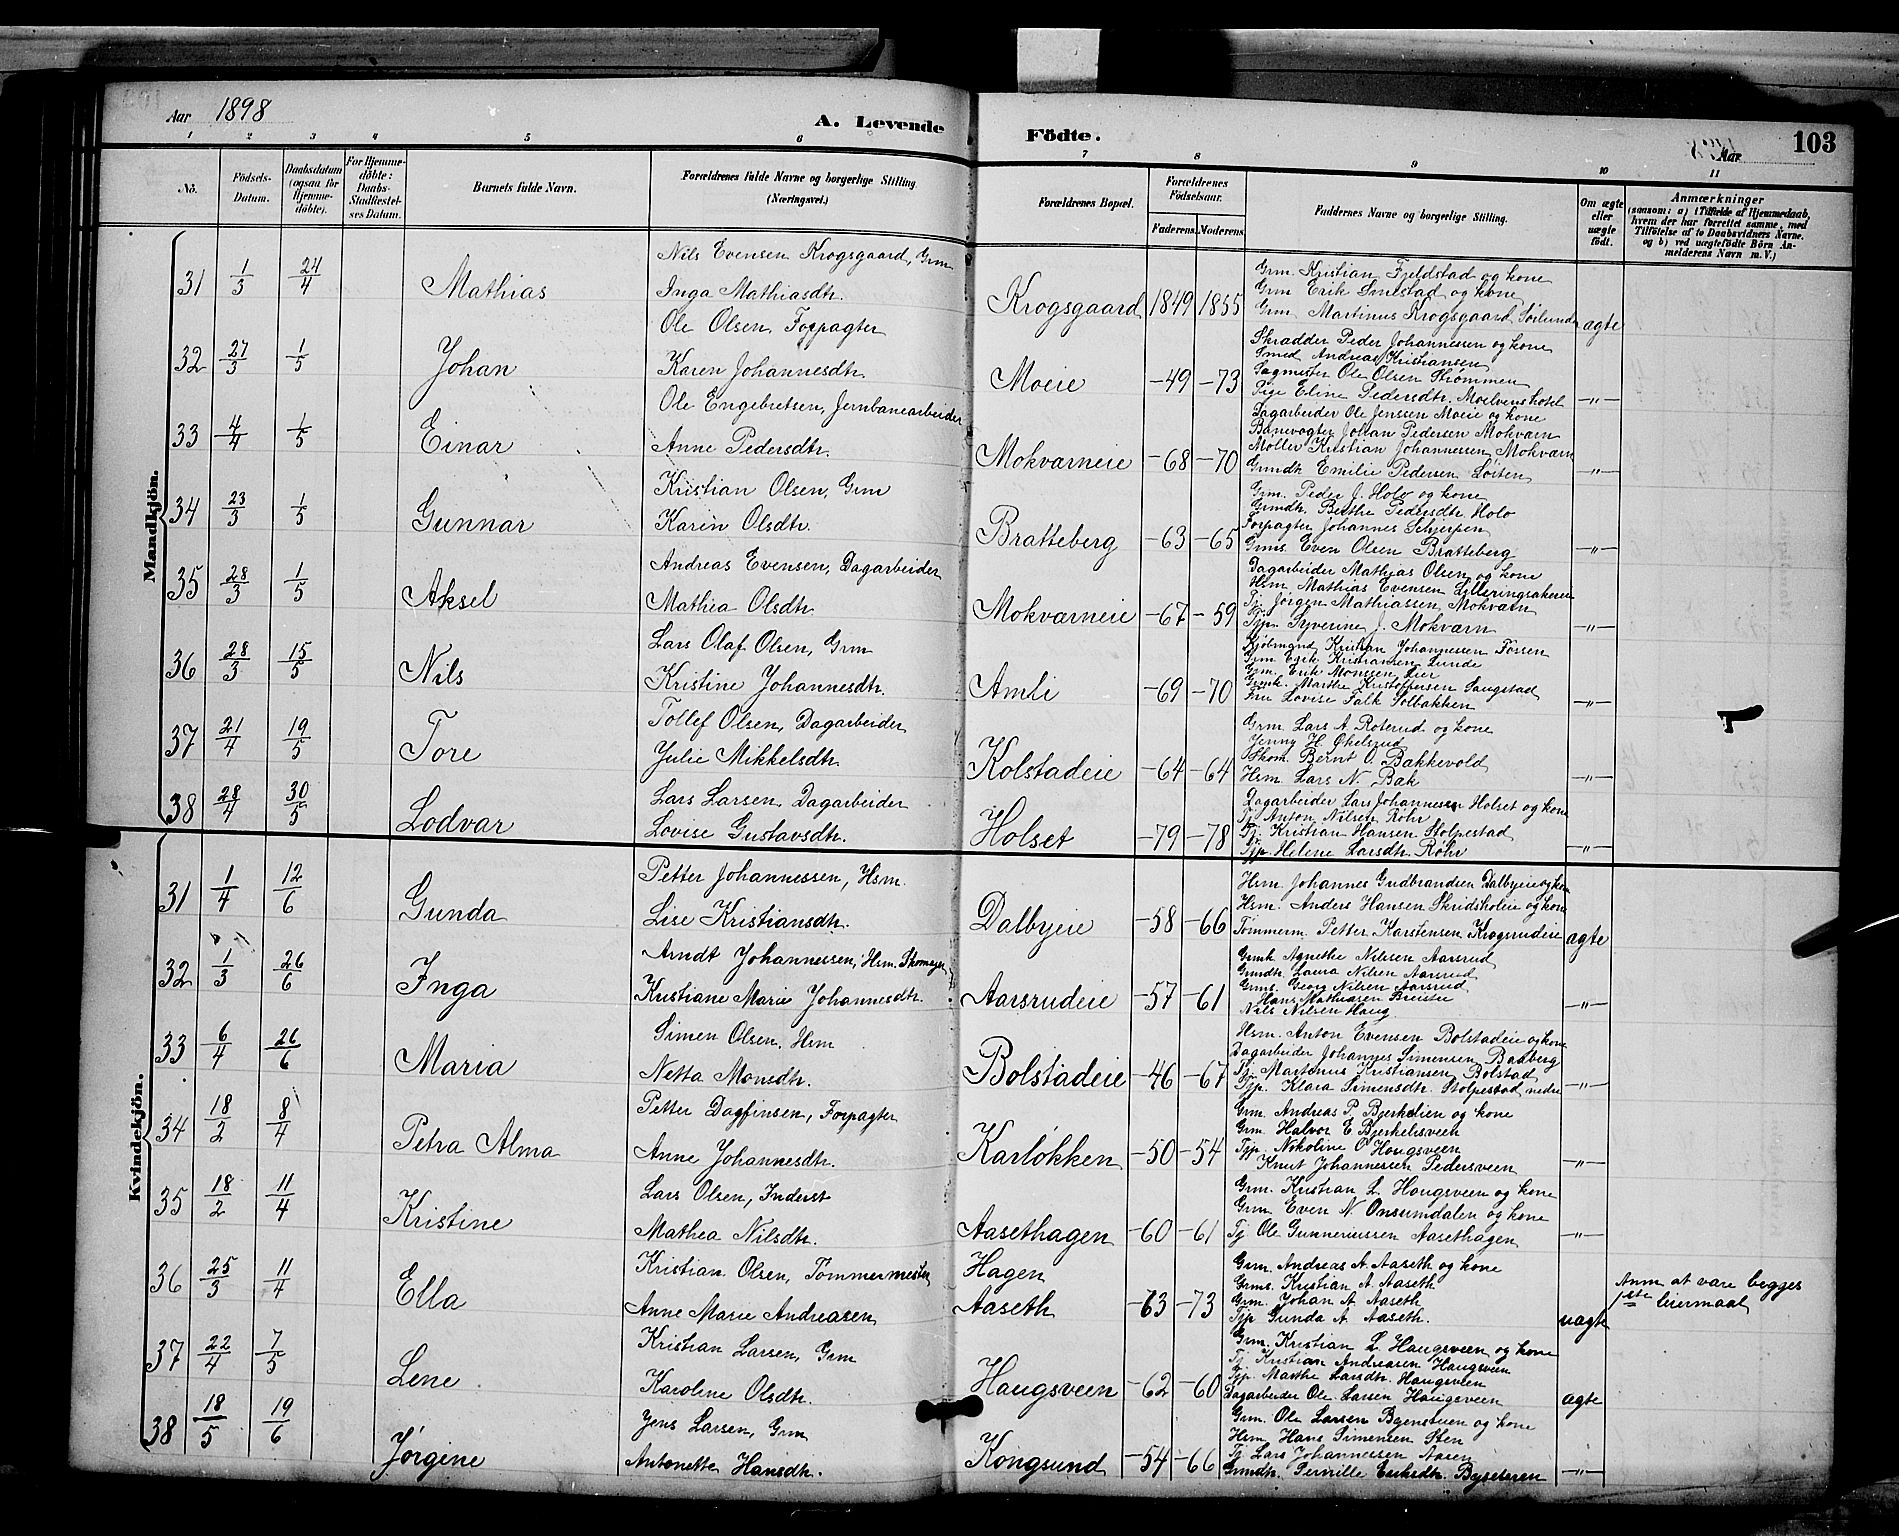 Aar 1898
A. Levende Födte.
Aar 103
1 2 3 4 5 6 7 8 9 10 11
No. Födsels-Datum. Daabsdatum (ogsaa for Hjemme-döbte). For Hjemme-döbte: Daabs-Stadfæstel-ses Datum. Barnets fulde Navn. Forældrenes fulde Navne og borgerlige Stilling. (Næringsvei.) Forældrenes Bopæl. Forældrenes Födselsaar. Faderens. Moderens. Faddernes Navne og borgerlige Stilling. Om ægte eller uægte födt. Anmærkninger (saasom: a) i Tilfælde af Hjemmedaab, hvem der har forrettet samme, med Tilföielse af to Daabsvidners Navne. og b) ved uægtefödte Börn An-melderens Navn m. V.)
Mandkjön.
31 1/3 24/4 Mathias Nils Evensen Krogsgaard, Grm
Inga Mathiasdtr. Krogsgaard 1849 1855 ægte
Grm. Kristian Fjeldstad og kone
Grm Erik Smestad og kone
Grm Martinus Krogsgaard
32 27/3 1/5 Johan Ole Olsen, Forpagter
Karen Johannesdtr. Moeie -49 -73 -"-
Skradder Peder Johannessen og kone
Smed Andreas Kristiansen
Sagmester Ole Olsen Strommen
Pige Eline Pedersdtr. Moelvens hotel
33 4/4 1/5 Einar Ole Engebretsen, Jernbanearbeider
Anne Pedersdtr. Mokvarneie -68 -70 -"-
Dagarbeider Ole Jenssen Moeie og kone
Banevogter Johan Pedersen Mokvarn
Møller Kristian Johannessen Mokvarn
Grmdtr Emilie Pedersen Løiten
34 23/3 1/5 Gunnar Kristian Olsen, Grm
Karin Olsdtr. Bratteberg -63 -65 -"-
Grm. Peder J. Holo og kone
Grmdtr. Berthe Pedersdtr Holo
Forpagter Johannes Schjerpen
Grms. Even Olsen Bratteberg
35 28/3 1/5 Aksel Andreas Evensen, Dagarbeider
Mathea Olsdtr. Mokvarneie -67 -59 -"-
Dagarbeider Mathias Olsen og kone
Hsm. Mathias Evensen Lilleringsakeren
Tj Jørgen Mathiassen Mokvarn
Tjp. Syverine J. Mokvarn
36 28/3 15/5 Nils Lars Olaf Olsen, Grm
Kristine Johannesdtr. Amli -69 -70 -"-
Kjøbmand Kristian Johannessen Forsen
Grm Erik Kristiansen Lunde
Grm. Erik Monssen Lier
Marthe Kristoffersen Saugstad
Fru Lovise Falk Solbakken
37 21/4 19/5 Tore Tollef Olsen, Dagarbeider
Julie Mikkelsdtr. Kolstadeie -64 -64 -"-
Grm Lars A. Roterud og kone
Jenny H. Økelsrud
Skom. Bernt O. Bakkevold
Hsm. Lars N. Bak
38 28/4 30/5 Lodvar Lars Larsen, Dagarbeider
Lovise Gustavsdtr. Holset -79 -78 -"-
Dagarbeider Lars Johannessen Holset og kone
Tj Anton Nilsen Røhr
Tj. Kristian Hansen Stolpestad
Tjp. Helene Larsdtr. Røhr
Kvindekjön.
31 1/4 12/6 Gunda Petter Johannessen, Hsm.
Lise Kristiansdtr. Dalbyeie -58 -66 ægte
Hsm. Johannes Gudbrandsen Dalbyeie og kone
Hsm. Anders Hansen Skridsholeie og kone
Tømmerm. Petter Karstensen Krogsrudeie
32 1/3 26/6 Inga Arndt Johannessen, Hsm. Skomager
Kristiane Marie Johannesdtr. Aarsrudeie -57 -61 -"-
Grmk Agnethe Nilsen Aarsrud
Grmdtr. Laura Nilsen Aarsrud
Grms. Georg Nilsen Aarsrud
Hans Mathiasen
Nils Nilsen Haug
33 6/4 26/6 Maria Simen Olsen, Hsm
Netta Monsdtr. Bolstadeie -46 -67 -"-
Hsm. Anton Evensen Bolstadeie og kone
Dagarbeider Johannes Simensen Baaberg
Tj. Martinus Kristiansen Bolstad
Tjp. Klara Simensdtr. Stolpestad nedre
34 18/2 8/4 Petra Alma Petter Dagfinsen, Forpagter
Anne Johannesdtr. Karløkken -50 -54 -"-
Grm. Andreas P. Bjerkelien og kone
Grm. Halvor E Bjerkelisveen
Tjp. Nikoline O Haugsveen
Knut Johannessen Pedersveen
35 18/2 11/4 Kristine Lars Olsen, Inderst
Mathea Nilsdtr. Aasethagen -60 -61 -"-
Grm. Kristian L. Haugsveen og kone
Grm Even N Onsumdalen og kone
Tj Ole Gunneriussen Aasethagen
36 25/3 11/4 Ella Kristian Olsen, Tømmermester Hagen
Anne Marie Andreasen Aaseth -63 -73 uægte
Grm. Andreas A. Aaseth og kone
Grms. Kristian A. Aaseth
Grm. Johan A Aaseth
Tjp Gunda A Aaseth.
Anm at vare begges
1ste leiermaal
37 22/4 7/5 Lene Kristian Larsen, Grm
Karoline Olsdtr. Haugsveen -62 -60 ægte
Grm. Kristian L Haugsveen og kone
Tj. Kristian Andreasen Haugsveen
Tjp. Marthe Larsdtr. Haugsveen
Dagarbeider Ole Larsen Haugsveen
38 18/5 19/6 Jørgine Jens Larsen, Grm
Antonette Hansdtr. Kongsund -54 -66 -"-
Grm. Ole Larsen og kone
Hsm Hans Simensen Sten
Tj Lars Johannessen Aasen
Grmdtr. Pernille Eriksdtr. Byseteren